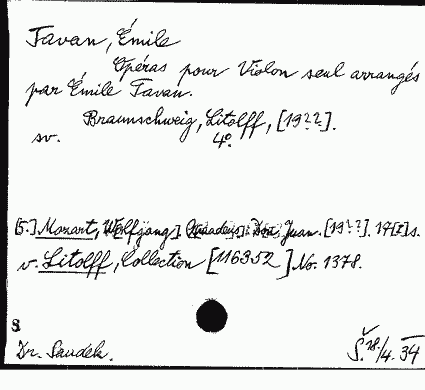 Tavan, Émile
Opéras pour Violon seul arrangés
par Émile Tavan.
Braunschweig, Litolff, [19??].
sv. 4º.
[5.] Mozart, W[olfgang] Amadeus: Don Juan. [19??]. 17[I]s.
v. Litolff, Collection [116352] No. 1378.
8
Dr. Saudek. Š. 18./4. 34